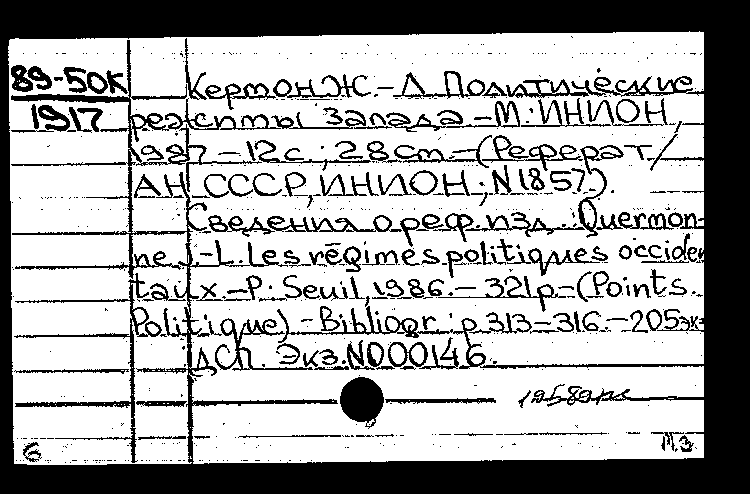 89-50К
1917
Кермон Ж.-Л. Политические
режимы Запада.-М.:ИНИОН,
1987.-12с.; 28cm.-(Реферат/
АН СССР, ИНИОН; N 1857).
Сведения о реф.изд.: Quermon-
ne J.-L. Les régimes politiques occiden
taux.-P.: Seuil, 1986.-321p.-(Points.
Politique).-Bibliogr.: p.313-316.-205экз
ДСП. Экз.N000146.
6
М.З